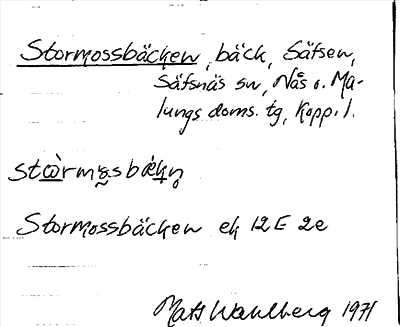 Stormossbäcken, bäck, Säfsen,
Säfsnäs sn, Nås o. Ma-
lungs doms. tg, Kopp. l.
Stormossbäcken ek 12E 2e
Mats Wahlberg 1971